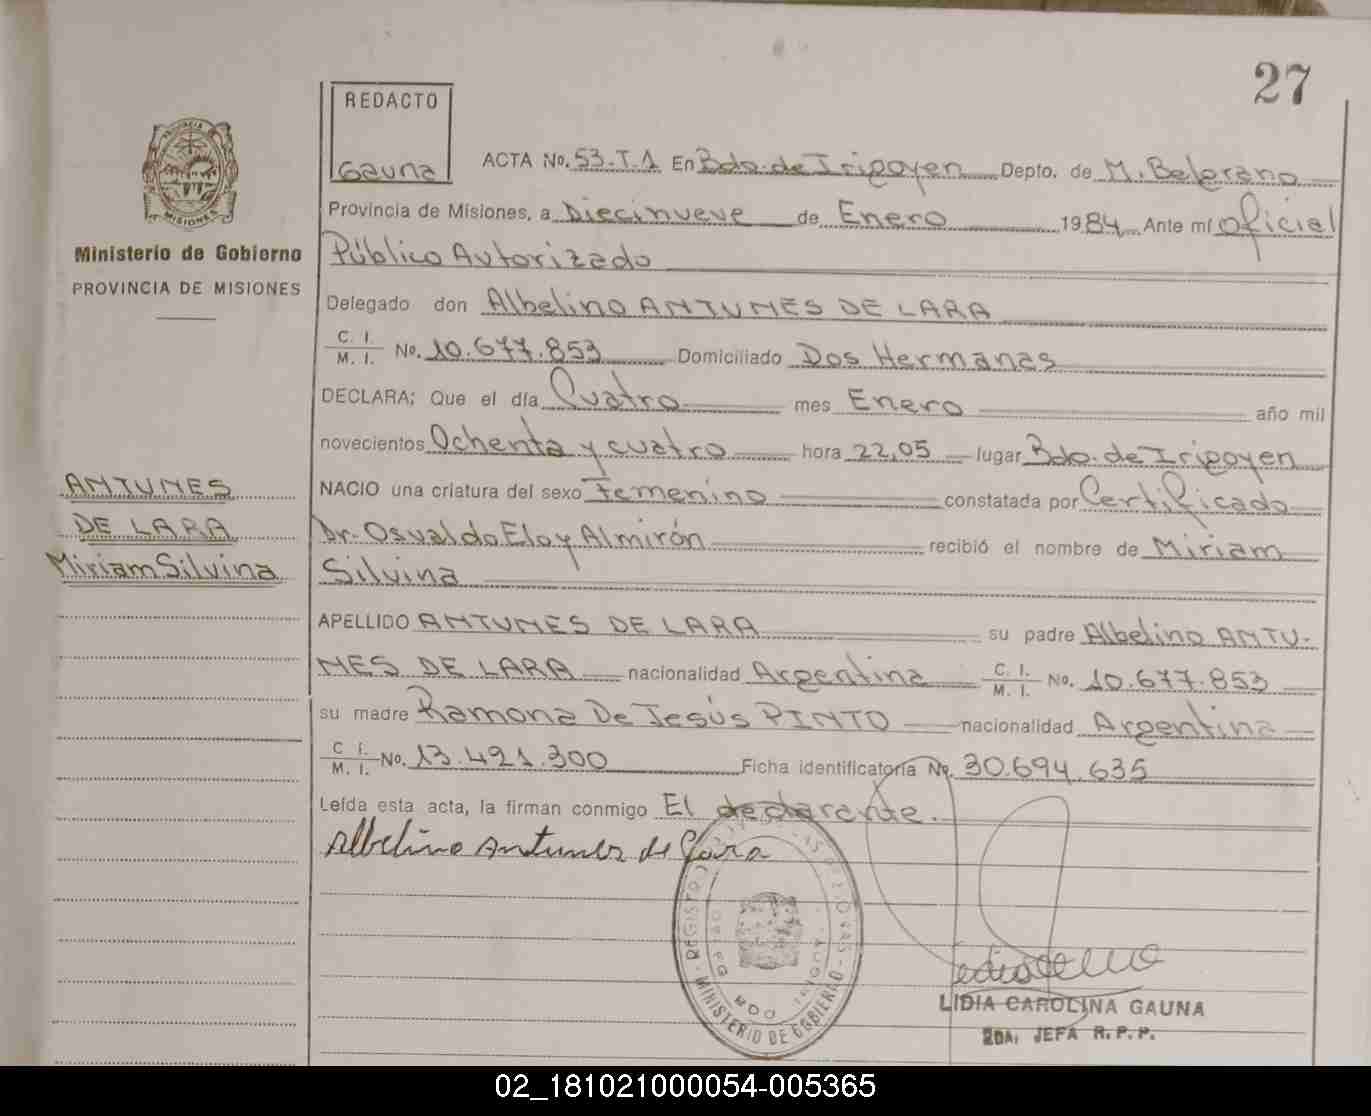 27
REDACTO
Gauna
PROVINCIA DE
MISIONES
Ministerio de Gobierno
PROVINCIA DE MISIONES
ACTA No. 53.T.1 En Bdo. de Irigoyen Depto. de M. Belgrano
Provincia de Misiones, a Diecinueve de Enero 1984 Ante mí Oficial
Público Autorizado
Delegado don Albelino ANTUNES DE LARA
C. I.
M. I. No. 10.677.853 Domiciliado Dos Hermanas
DECLARA; Que el día Cuatro mes Enero año mil
novecientos Ochenta y cuatro hora 22,05 lugar Bdo. de Irigoyen
NACIO una criatura del sexo Femenino constatada por Certificado
Dr. Osvaldo Eloy Almirón recibió el nombre de Miriam
Silvina
APELLIDO ANTUNES DE LARA su padre Albelino ANTU-
NES DE LARA nacionalidad Argentina C. I. M. I. No. 10.677.853
su madre Ramona De Jesús PINTO nacionalidad Argentina
C. I.
M. I. No. 13.421.300 Ficha identificatoria No. 30.694.635
Leída esta acta, la firman conmigo El declarante.
Albelino Antunes de Lara
ANTUNES
DE LARA
Miriam Silvina
MINISTERIO DE GOBIERNO
LIDIA CAROLINA GAUNA
2DA. JEFA R. P. P.
02_181021000054-005365